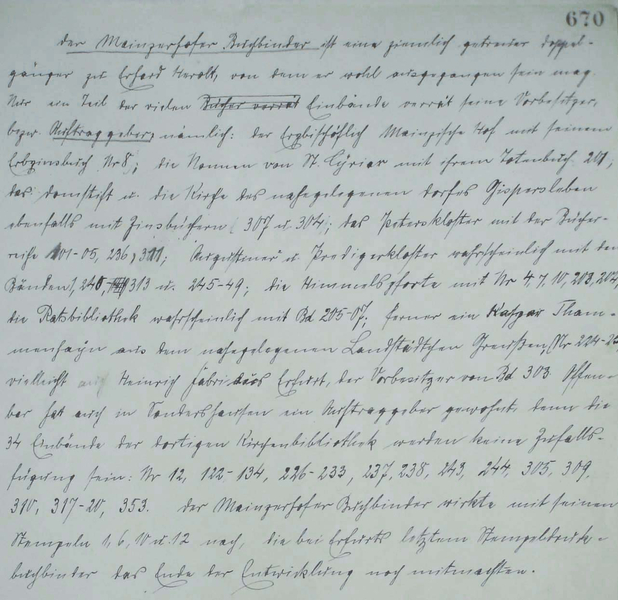 670
Der Mainzerhofer Buchbinder ist eine ziemlich getreuer Doppel-
gänger zu Erhard Herolt, von dem er wohl ausgegangen sein mag.
Nur ein Teil der vielen Bücher verrät Einbände verrät seine Vorbesitzer,
bezw. Auftraggeber, nämlich: der Erzbischöflich Mainzische Hof mit seinem
Erbzinsbuch Nr 8; die Nonnen von St. Cyriax mit ihrem Totenbuch 201;
das Domstift u. die Kirche des nahegelegenen Dorfes Gispersleben
ebenfalls mit Zinsbüchern (307 u 304); das Peterskloster mit der Bücher-
reihe 101-05, 236, 311; Augustiner u Predigerkloster wahrscheinlich mit den
Bänden 1, 240, 313 u. 245-49; die Himmelspforte mit Nr 4, 7, 10, 203, 202,
die Ratsbibliothek wahrscheinlich mit Bd 205-07, ferner ein Kaspar Tham-
menhayn aus dem nahegelegenen Landstädtchen Greußen, (Nr 224-
vielleicht auch Heinrich Fabri aus Erfurt, der Vorbesitzer von Bd 303. Offen-
bar hat auch in Sondershausen ein Auftraggeber gewohnt, denn die
34 Einbände der dortigen Kirchenbibliothek werden keine Zufalls-
fügung sein: Nr 12, 122-134, 226-233, 237, 238, 243, 244, 305, 309,
310, 317-20, 353. Der Mainzerhofer Buchbinder wirkte mit seinen
Stempeln 1, 6, 10 u. 12 nach, die bei Erfurts letztem Stempeldruck-
buchbinder das Ende der Entwicklung noch mitmachten.